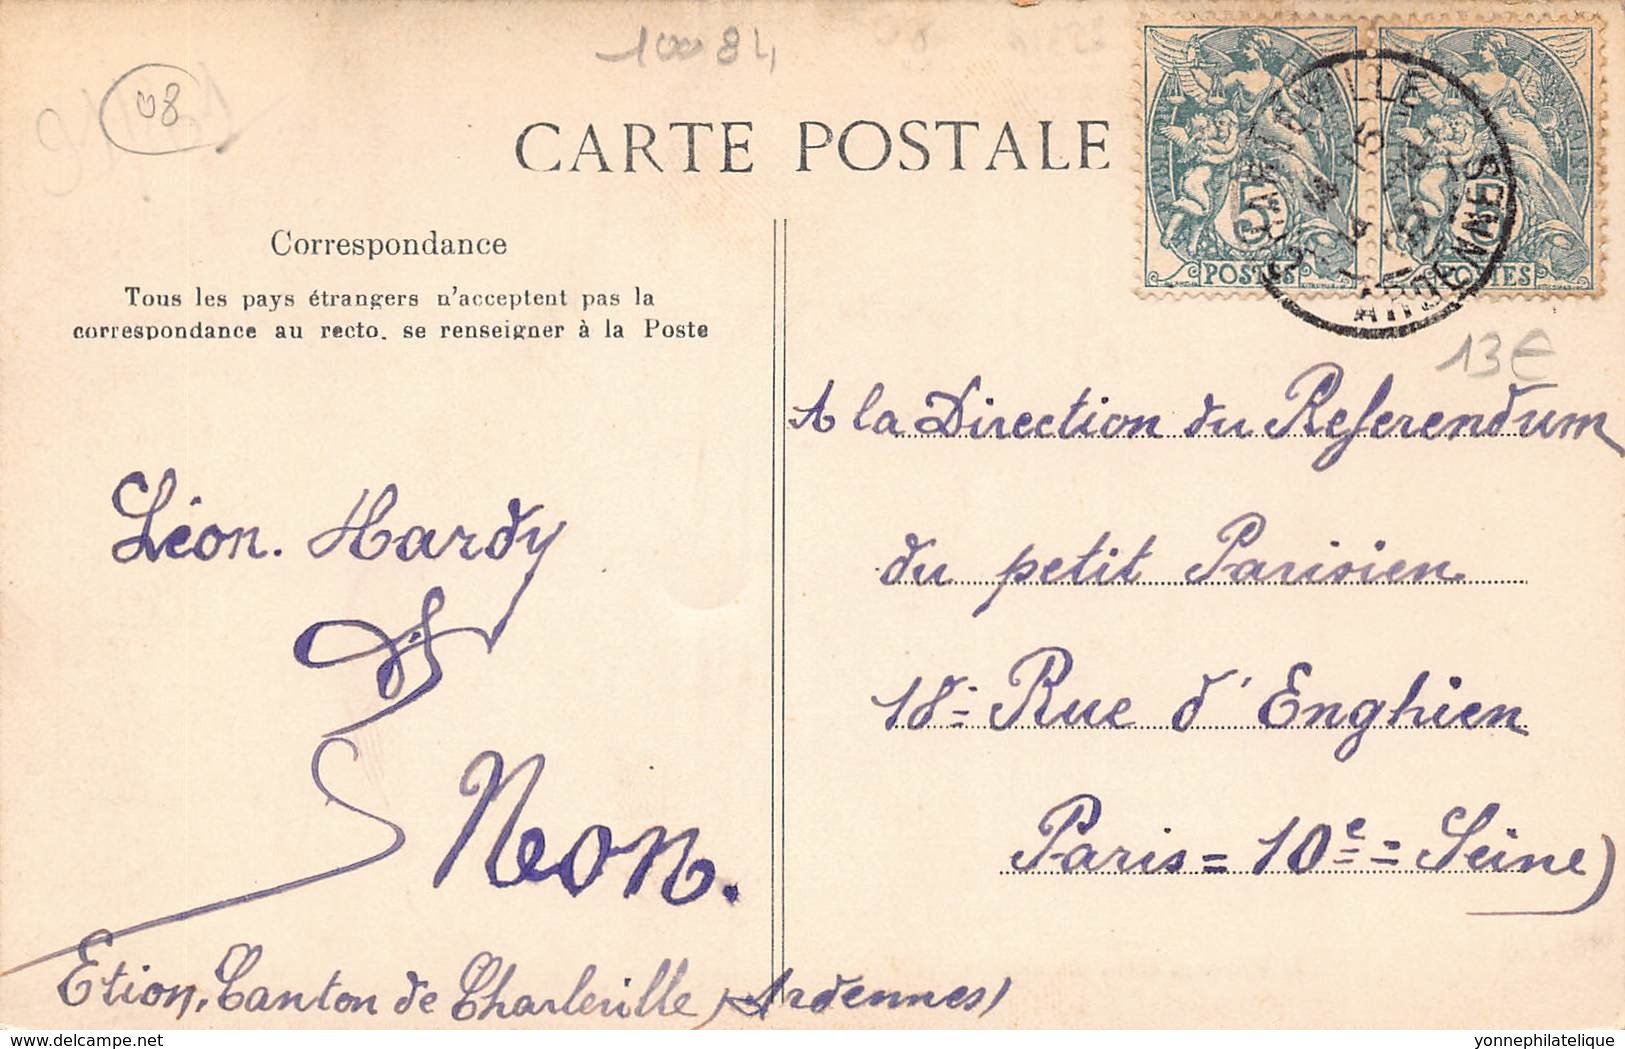 10084
08
CARTE POSTALE
Correspondance
Tous les pays étrangers n'acceptent pas la
correspondance au recto, se renseigner à la Poste
5
POSTES
5
POSTES
ARDENNES
13€
A la Direction du Referendum
du petit Parisien
18 = Rue d'Enghien
Paris = 10e = Seine)
Léon. Hardy
Neon.
Etion, Canton de Charleville (Ardennes)
delcampe.net
yonnephilatelique